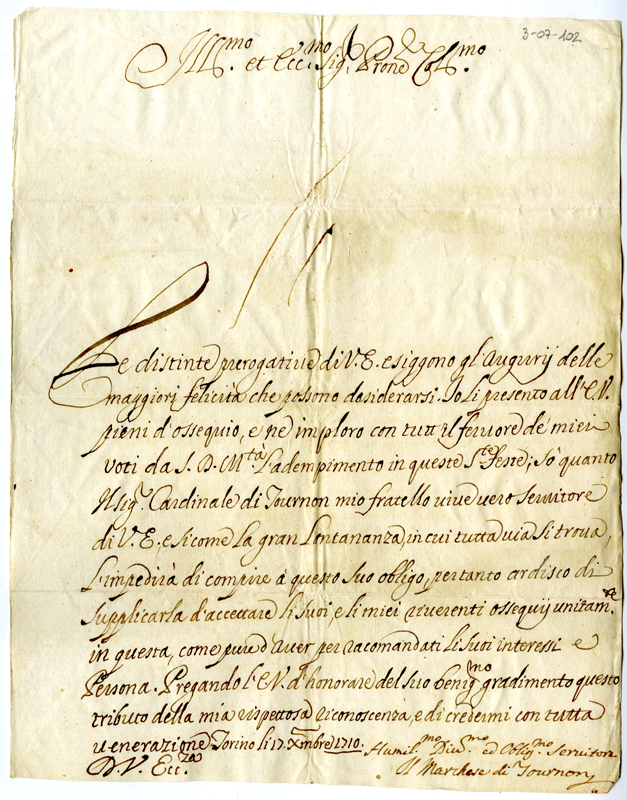 3-07-102
Ill.mo et Ecc.mo Sig.r Prone Coll.mo
Le distinte prerogative di V.E. esiggono gl'Augurij delle
maggiori felicità che possono desiderarsi. Io li presento all'E.V.
pieni d'ossequio, e ne imploro con tutt'il fervore de miei
voti da S. D. M.tà L'adempimento in queste S.te Feste; So quanto
Il Sig.r Cardinale di Tournon mio fratello vive vero servitore
di V.E. e sicome La gran Lontananza, in cui tutta via si trova,
L'impedirà di compire à questo suo obligo, per tanto ardisco di
supplicarla d'accettare li suoi, e li miei riverenti ossequij unitam.te
in questa, come pure d'aver per racomandati li suoi interessi e
Persona. Pregando l'E.V. d'honorare del suo benig.mo gradimento questo
tributo della mia rispettosa riconoscenza, e di credermi con tutta
venerazione Torino li 17. Xmbre 1710.
D. V. Ecc.za
Humil.mo Div.mo ed Oblig.mo Servitore
Il Marchese di Tournon